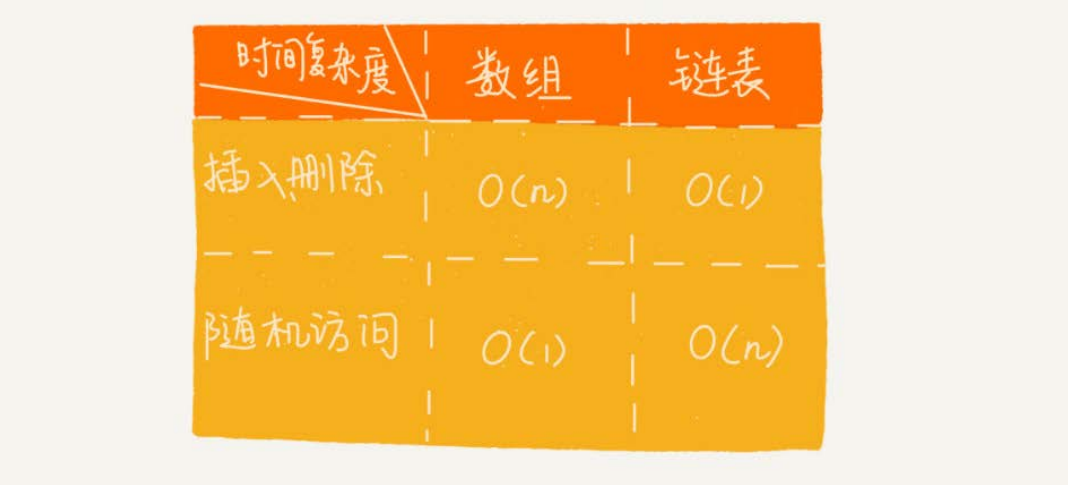 时间复杂度 数组 链表
插入、删除 O(n) O(1)
随机访问 O(1) O(n)